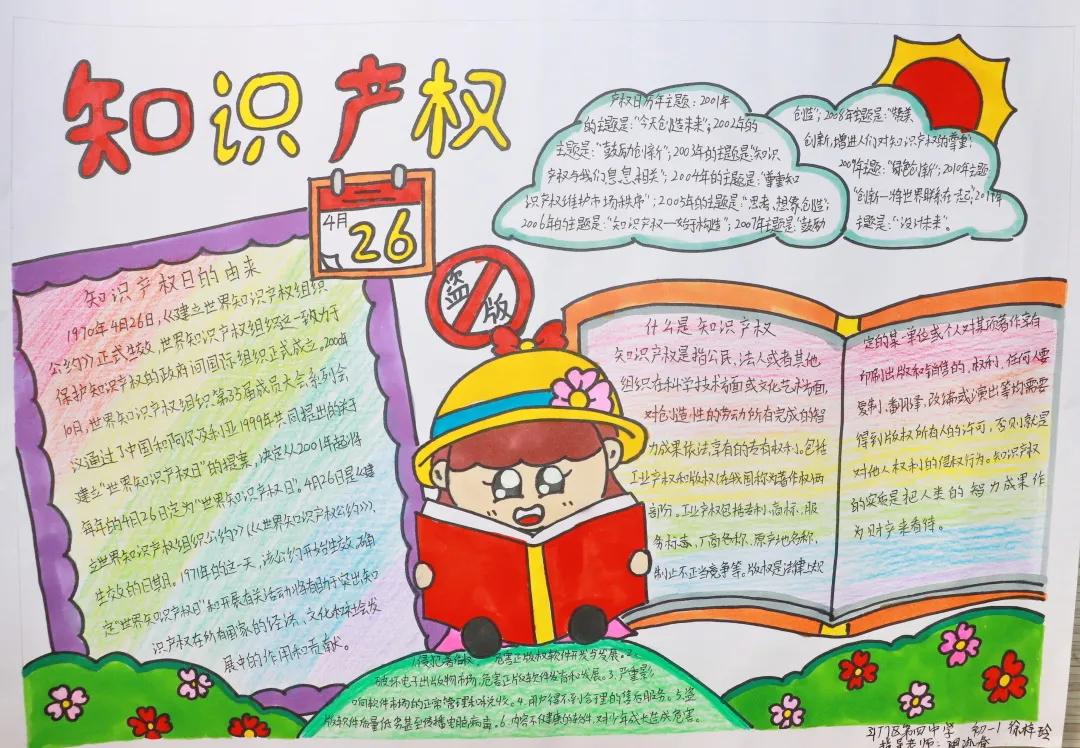 知识产权
4月
26
盗版
产权日历年主题：2001年
的主题是："今天创造未来"；2002年的
主题是："鼓励创新"；2003年的主题是："知识
产权与我们息息相关"；2004年的主题是："尊重知
识产权维护市场秩序"；2005年的主题是："思考、想象、创造"；
2006年的主题是："知识产权—始于构造"；2007年主题是："鼓励
创造"；2008年主题是："赞美
创新，增进人们对知识产权的尊重"；
2009年主题："绿色创新"；2010年主题
"创新—将世界联系在一起"；2011年
主题是："设计未来"。
知识产权日的由来
1970年4月26日，《建立世界知识产权组织
公约》正式生效，世界知识产权组织这一致力于
保护知识产权的政府间国际组织正式成立。2000年
10月，世界知识产权组织第35届成员大会系列会
议通过了中国和阿尔及利亚1999年共同提出的关于
建立"世界知识产权日"的提案，决定从2001年起将
每年的4月26日定为"世界知识产权日"。4月26日是《建
立世界知识产权组织公约》（《世界知识产权公约》）
生效的日期。1971年的这一天，该公约开始生效，确
定"世界知识产权日"和开展有关活动将有助于突出知
识产权在所有国家的经济、文化和社会发
展中的作用和贡献。
什么是知识产权
知识产权是指公民、法人或者其他
组织在科学技术方面或文化艺术方面，
对创造性的劳动所有完成的智
力成果依法享有的专有权利。包括
工业产权和版权（在我国称为著作权）两
部分。工业产权包括专利、商标、服
务标志、厂商名称、原产地名称，
制止不正当竞争等。版权是法律上规
定的某一单位或个人对某项著作享有
印刷出版和销售的权利，任何人要
复制、翻译，改编或演出等均需要
得到版权所有人的许可，否则就是
对他人权利的侵权行为。知识产权
的实质是把人类的智力成果作
为财产来看待。
危害正版权软件研发与发展。2、
破坏电子出版物市场，危害正版软件发育和发展。3、严重影
响软件市场的正常管理和秩序。4、用户得不到合理的售后服务。5、盗
版软件质量低劣甚至传播电脑病毒。6、内容不健康的软件，对少年成长造成危害。
斗门区第四中学 初一1 徐梓玲
指导老师：